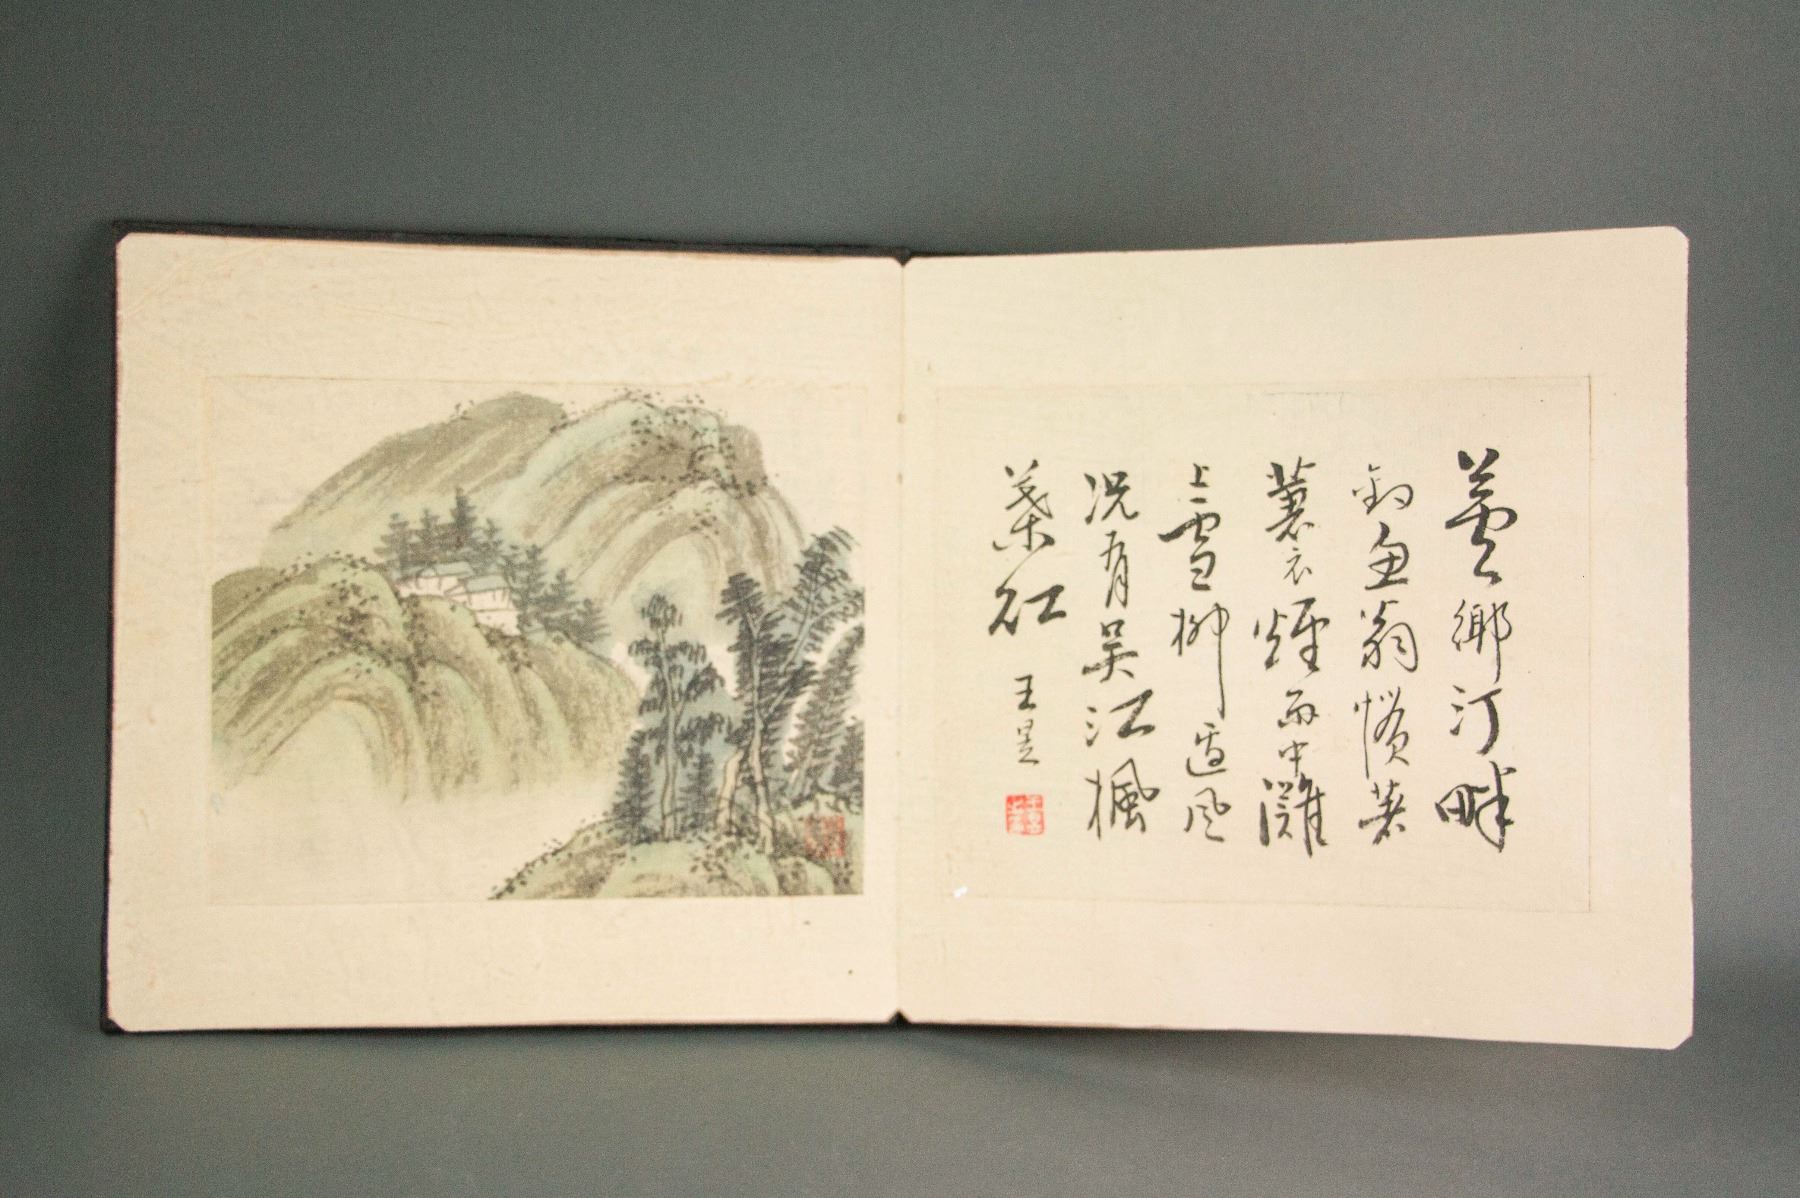 芸鄉汀畔
釣魚翁慣著
蓑衣煙雨中灘
上雪柳邊風
況有吳江楓
葉紅
王昱